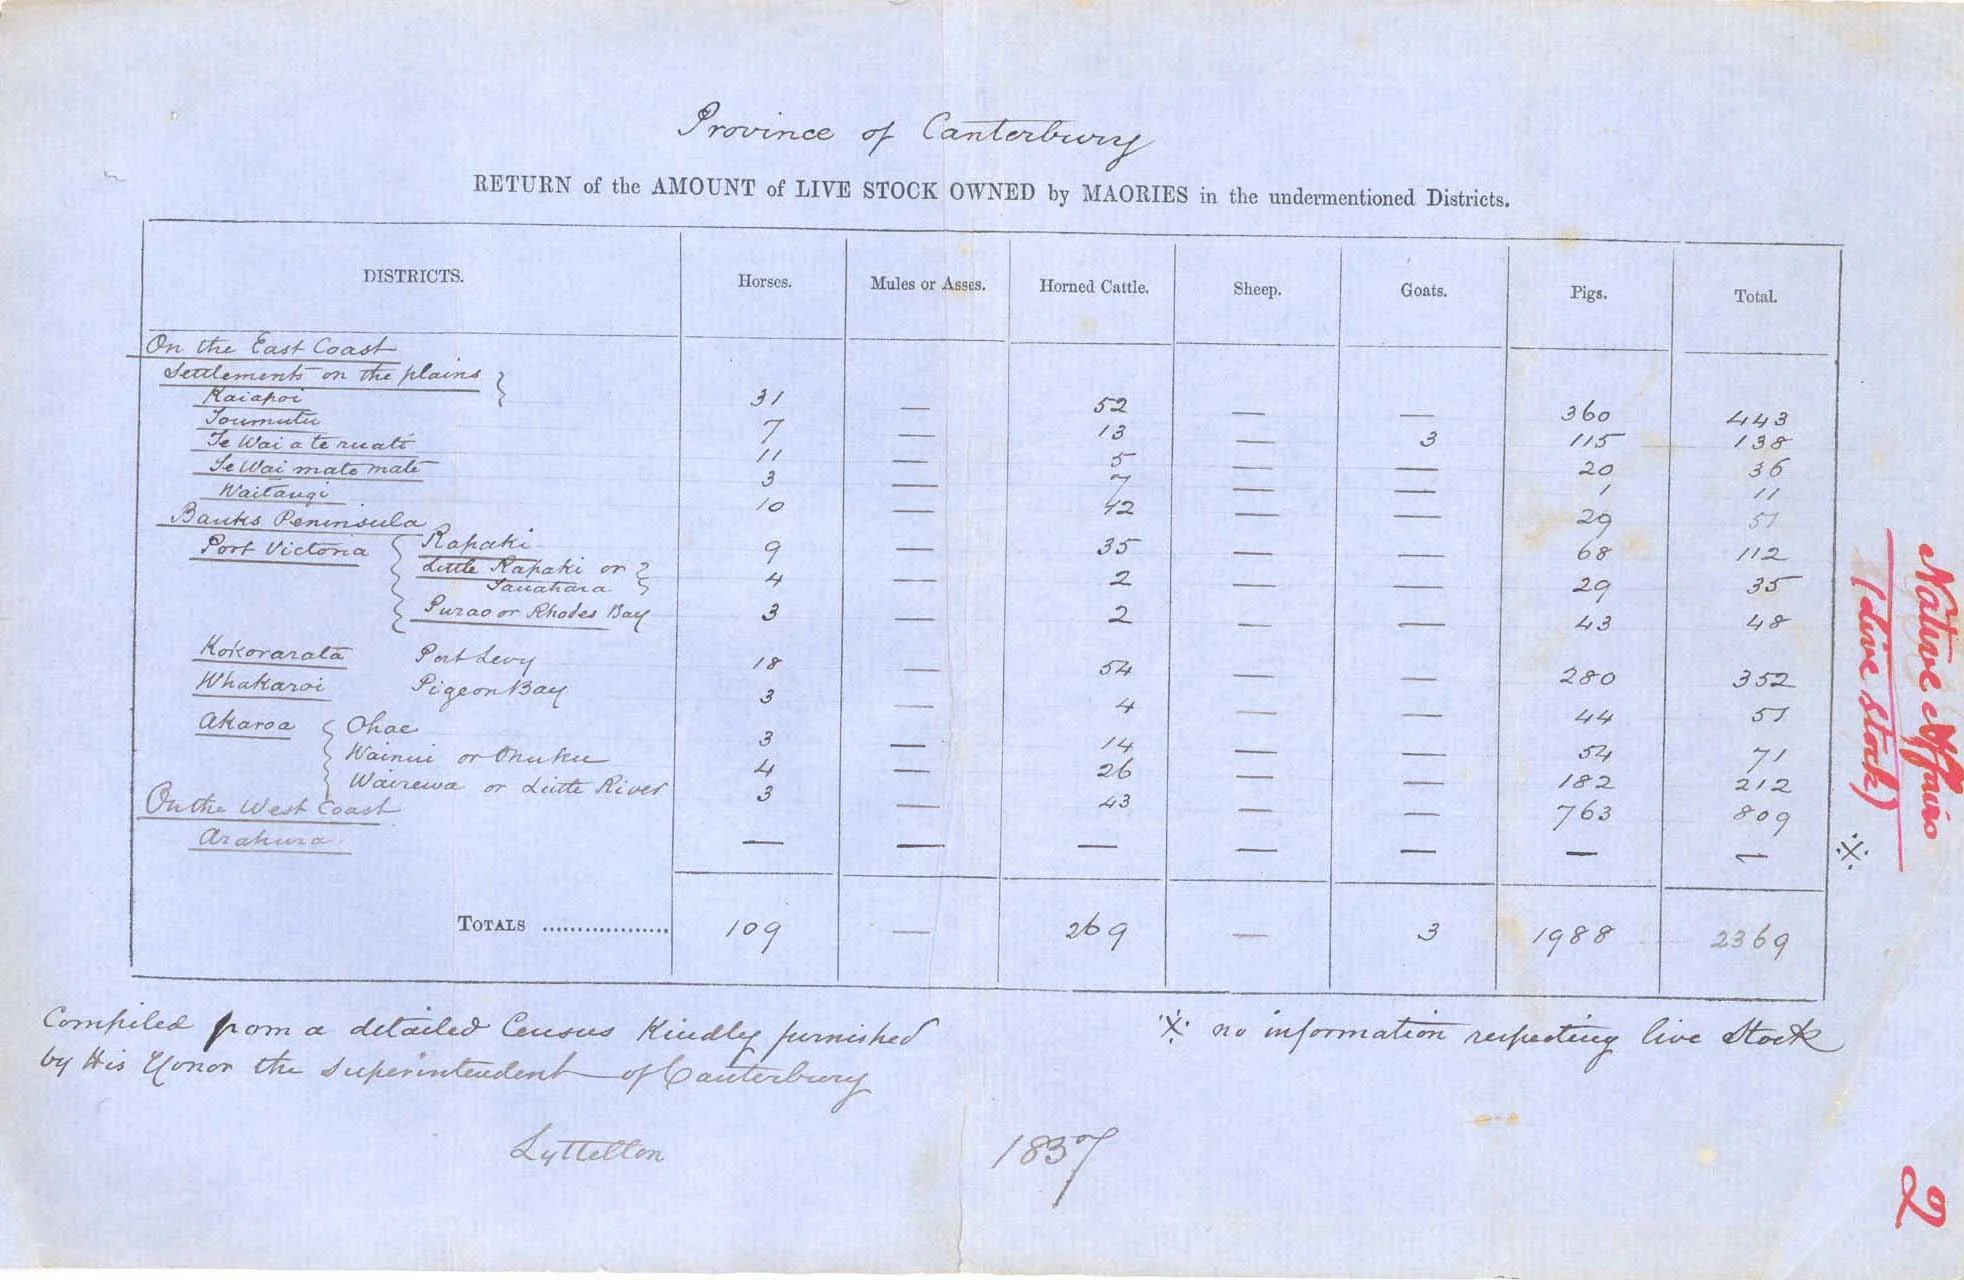 Province of Canterbury
RETURN of the AMOUNT of LIVE STOCK OWNED by MAORIES in the undermentioned Districts.
DISTRICTS. Horses. Mules or Asses. Horned Cattle. Sheep. Goats. Pigs. Total.
On the East Coast
Settlements on the plains
Kaiapoi 31 — 52 — — 360 443
Toumutu 7 — 13 — 3 115 138
Te Wai a te ruati 11 — 5 — — 20 36
Te Wai mate mate 3 — 7 — — 1 11
Waitangi 10 — 42 — — 29 51
Banks Peninsula
Port Victoria Rapaki 9 — 35 — — 68 112
Little Rapaki or
Tauahara 4 — 2 — — 29 35
Purao or Rhodes Bay 3 — 2 — — 43 48
Kokorarata Port Levy 18 — 54 — — 280 352
Whakaroi Pigeon Bay 3 — 4 — — 44 51
Akaroa Ohae 3 — 14 — — 54 71
Wainui or Onuku 4 — 26 — — 182 212
Wairewa or Little River 3 — 43 — — 763 809
On the West Coast
Arahura — — — — — — — ※
TOTALS .................. 109 — 269 — 3 1988 2369
Compiled from a detailed Census Kindly furnished
by His Honor the Superintendent of Canterbury
※ no information respecting live Stock
Lyttelton 1857
Native Affairs
(Live Stock)
2